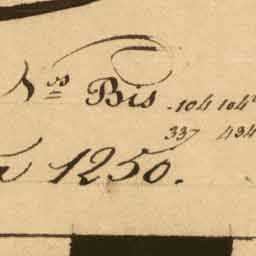 N.os Bis - 104 104
337 434
1250.